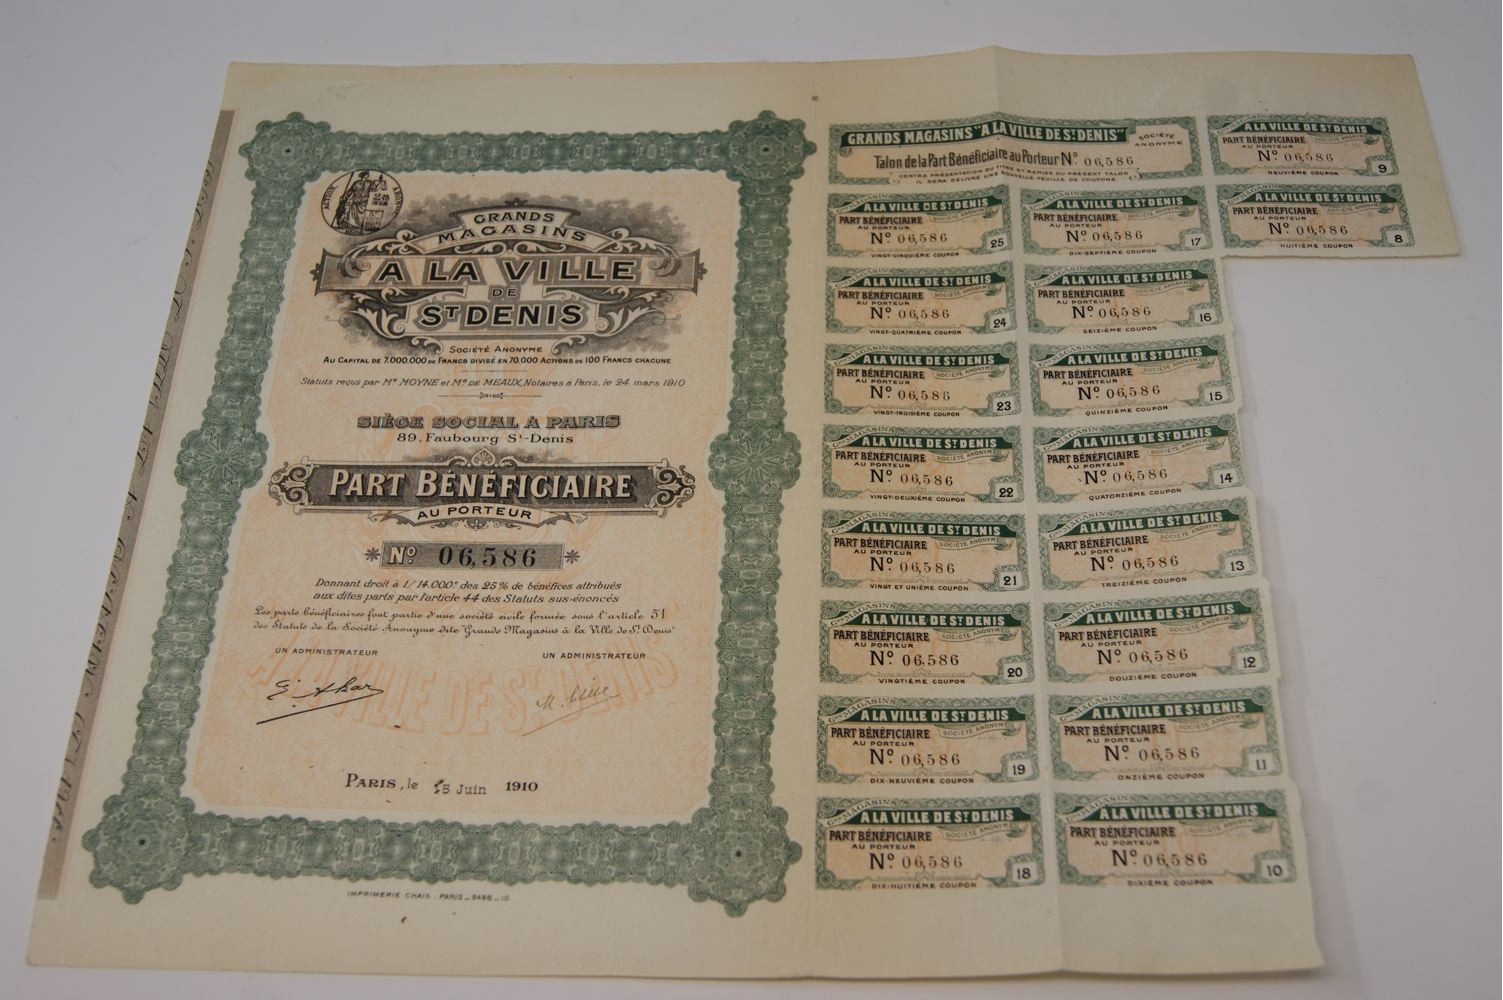 ACTION
ABONNE
GRANDS
MAGASINS
A LA VILLE
DE
ST DENIS
SOCIÉTÉ ANONYME
AU CAPITAL DE 7.000.000 DE FRANCS DIVISÉ EN 70.000 ACTIONS DE 100 FRANCS CHACUNE
Statuts reçus par Me MOYNE et Me DE MEAUX, Notaires à Paris, le 24 mars 1910
SIÈGE SOCIAL A PARIS
89, Faubourg St-Denis
PART BÉNÉFICIAIRE
AU PORTEUR
No 06,586
Donnant droit à 1/14.000e des 25% de bénéfices attribués
aux dites parts par l'article 44 des Statuts sus-énoncés
Les parts bénéficiaires font partie d'une société civile formée sous l'article 51
des Statuts de la Société Anonyme dite "Grands Magasins à la Ville de St Denis"
UN ADMINISTRATEUR
UN ADMINISTRATEUR
A LA VILLE DE ST DENIS
PARIS, le 15 Juin 1910
IMPRIMERIE CHAIX. PARIS_9498_10
GRANDS MAGASINS "A LA VILLE DE ST DENIS" SOCIÉTÉ ANONYME
Talon de la Part Bénéficiaire au Porteur No 06,586
CONTRE PRÉSENTATION DU TITRE ET REMISE DU PRÉSENT TALON
IL SERA DÉLIVRÉ UNE NOUVELLE FEUILLE DE COUPONS
Gds MAGASINS
A LA VILLE DE ST DENIS
PART BÉNÉFICIAIRE SOCIÉTÉ ANONYME
AU PORTEUR
No 06,586
25
VINGT-CINQUIÈME COUPON
Gds MAGASINS
A LA VILLE DE ST DENIS
PART BÉNÉFICIAIRE SOCIÉTÉ ANONYME
AU PORTEUR
No 06,586
24
VINGT-QUATRIÈME COUPON
Gds MAGASINS
A LA VILLE DE ST DENIS
PART BÉNÉFICIAIRE SOCIÉTÉ ANONYME
AU PORTEUR
No 06,586
23
VINGT-TROISIÈME COUPON
Gds MAGASINS
A LA VILLE DE ST DENIS
PART BÉNÉFICIAIRE SOCIÉTÉ ANONYME
AU PORTEUR
No 06,586
22
VINGT-DEUXIÈME COUPON
Gds MAGASINS
A LA VILLE DE ST DENIS
PART BÉNÉFICIAIRE SOCIÉTÉ ANONYME
AU PORTEUR
No 06,586
21
VINGT ET UNIÈME COUPON
Gds MAGASINS
A LA VILLE DE ST DENIS
PART BÉNÉFICIAIRE SOCIÉTÉ ANONYME
AU PORTEUR
No 06,586
20
VINGTIÈME COUPON
Gds MAGASINS
A LA VILLE DE ST DENIS
PART BÉNÉFICIAIRE SOCIÉTÉ ANONYME
AU PORTEUR
No 06,586
19
DIX-NEUVIÈME COUPON
Gds MAGASINS
A LA VILLE DE ST DENIS
PART BÉNÉFICIAIRE SOCIÉTÉ ANONYME
AU PORTEUR
No 06,586
18
DIX-HUITIÈME COUPON
Gds MAGASINS
A LA VILLE DE ST DENIS
PART BÉNÉFICIAIRE SOCIÉTÉ ANONYME
AU PORTEUR
No 06,586
17
DIX-SEPTIÈME COUPON
Gds MAGASINS
A LA VILLE DE ST DENIS
PART BÉNÉFICIAIRE SOCIÉTÉ ANONYME
AU PORTEUR
No 06,586
16
SEIZIÈME COUPON
Gds MAGASINS
A LA VILLE DE ST DENIS
PART BÉNÉFICIAIRE SOCIÉTÉ ANONYME
AU PORTEUR
No 06,586
15
QUINZIÈME COUPON
Gds MAGASINS
A LA VILLE DE ST DENIS
PART BÉNÉFICIAIRE SOCIÉTÉ ANONYME
AU PORTEUR
No 06,586
14
QUATORZIÈME COUPON
Gds MAGASINS
A LA VILLE DE ST DENIS
PART BÉNÉFICIAIRE SOCIÉTÉ ANONYME
AU PORTEUR
No 06,586
13
TREIZIÈME COUPON
Gds MAGASINS
A LA VILLE DE ST DENIS
PART BÉNÉFICIAIRE SOCIÉTÉ ANONYME
AU PORTEUR
No 06,586
12
DOUZIÈME COUPON
Gds MAGASINS
A LA VILLE DE ST DENIS
PART BÉNÉFICIAIRE SOCIÉTÉ ANONYME
AU PORTEUR
No 06,586
11
ONZIÈME COUPON
Gds MAGASINS
A LA VILLE DE ST DENIS
PART BÉNÉFICIAIRE SOCIÉTÉ ANONYME
AU PORTEUR
No 06,586
10
DIXIÈME COUPON
Gds MAGASINS
A LA VILLE DE ST DENIS
PART BÉNÉFICIAIRE SOCIÉTÉ ANONYME
AU PORTEUR
No 06,586
9
NEUVIÈME COUPON
Gds MAGASINS
A LA VILLE DE ST DENIS
PART BÉNÉFICIAIRE SOCIÉTÉ ANONYME
AU PORTEUR
No 06,586
8
HUITIÈME COUPON